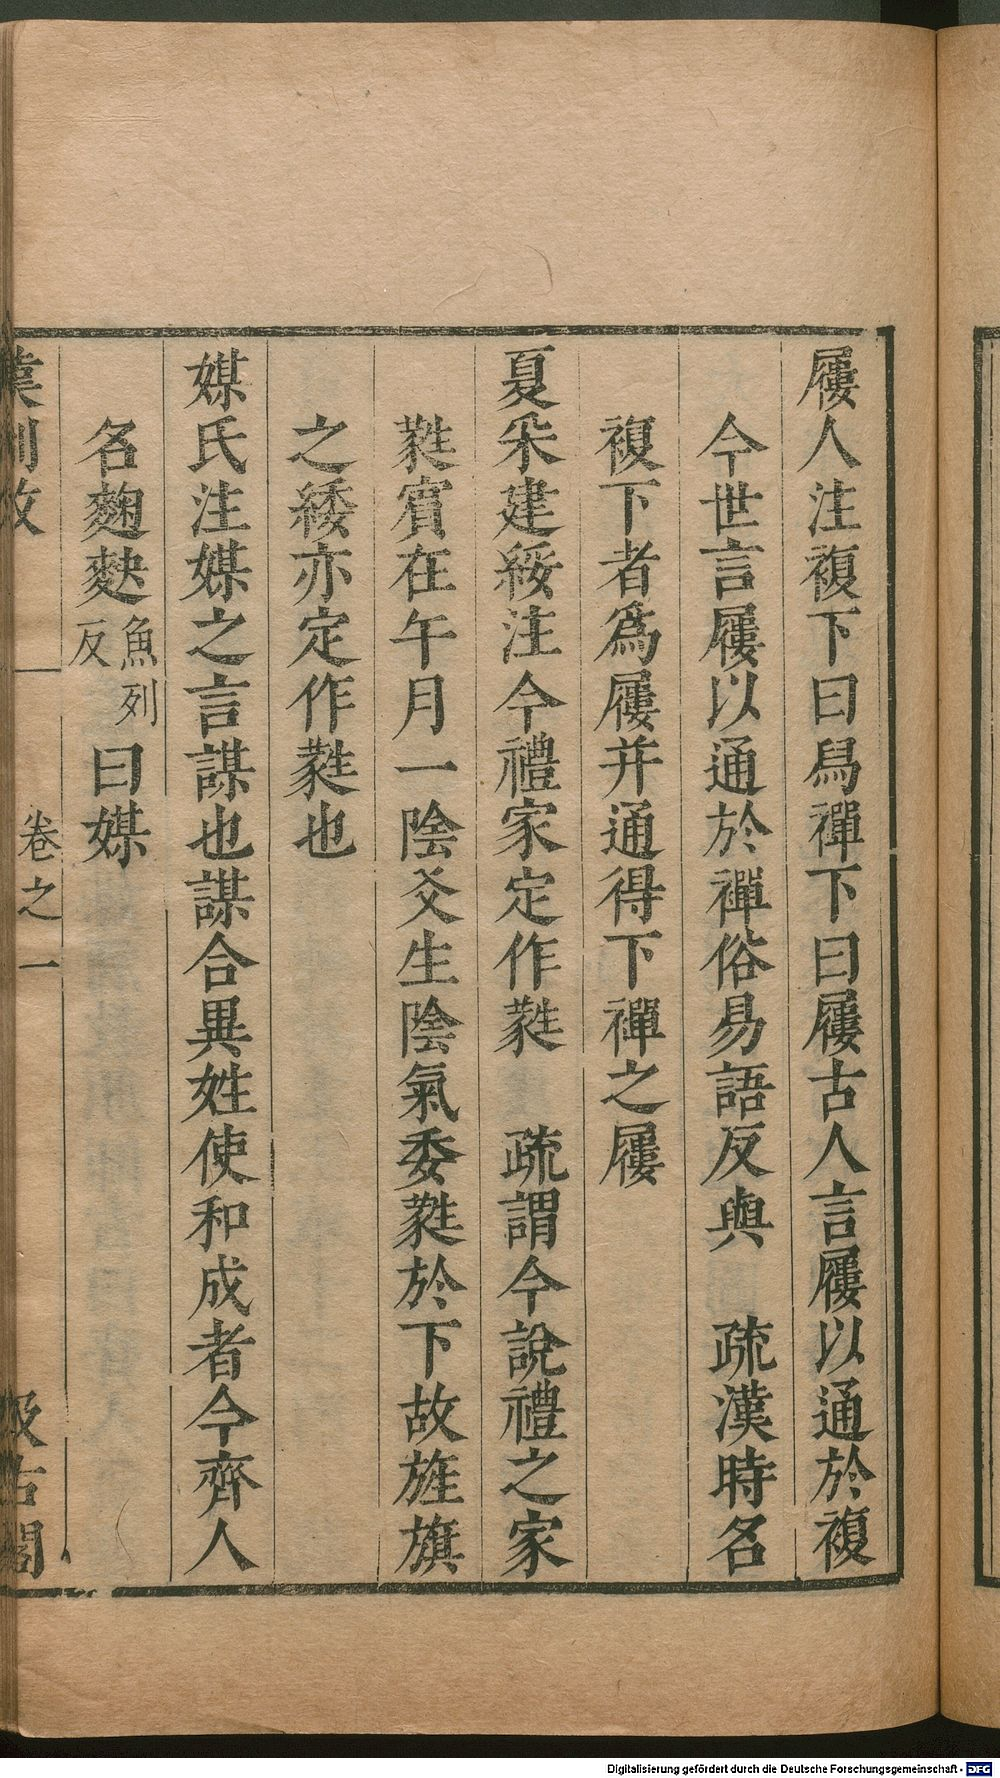 屨人注複下曰舄禪下曰屨古人言屨以通於複
今世言屨以通於禪俗易語反與　疏漢時名
複下者爲屨并通得下禪之屨
夏采建綏注今禮家定作蕤　疏謂今說禮之家
蕤賓在午月一陰爻生陰氣委蕤於下故旌旗
之緌亦定作蕤也
媒氏注媒之言謀也謀合異姓使和成者今齊人
名麴麩魚列反曰媒
卷之一
汲古閣
Digitalisierung gefördert durch die Deutsche Forschungsgemeinschaft - DFG